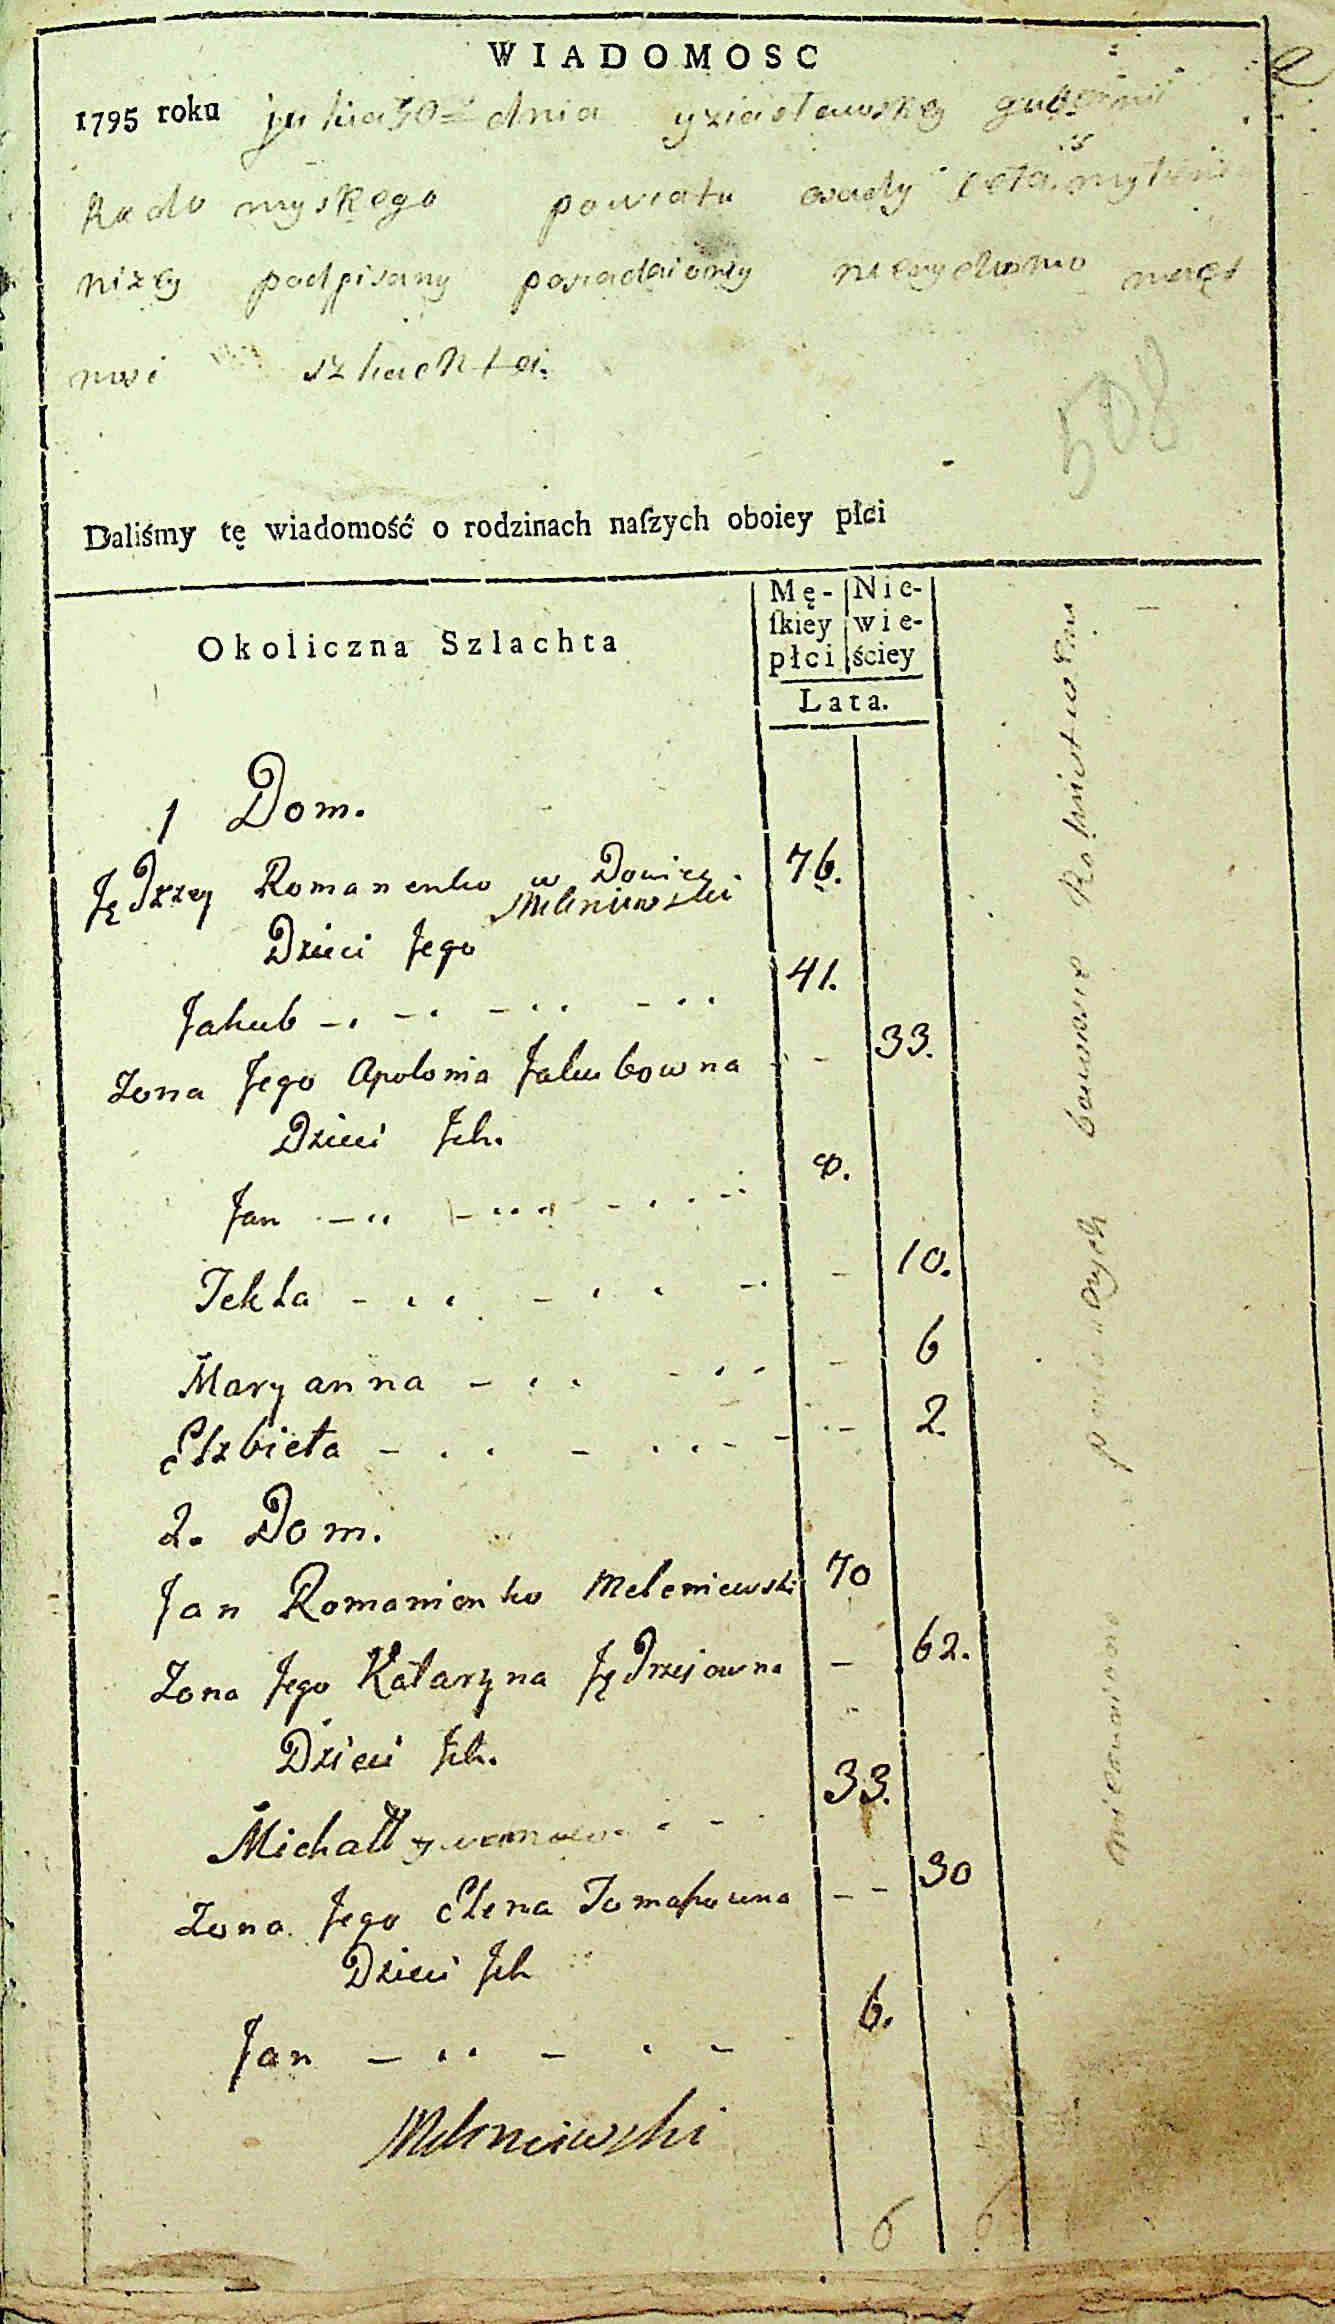 WIADOMOSC
1795 roku julia 30 dnia yziasławskey gubernii
Rado myskego powiatu osady
nizey podpisany posiadaiącey
szlachta.
508
Daliśmy tę wiadomość o rodzinach naſzych oboiey płci
Okoliczna Szlachta
Mę-ſkiey płci
Nie-wie-ściey
Lata.
1 Dom.
Jędrzey Romanenko w Dowiec 76.
Meleniewski
Dzieci Jego
Jakub 41.
Zona Jego Apolonia Jakubowna 33.
Dzieci Ich.
Jan 8.
Tekla 10.
Maryanna 6
Elzbieta 2.
2. Dom.
Jan Romanienko Meleniewski 70
Zona Jego Katarzyna Jędrzejowna 62.
Dzieci Ich.
Michał 33.
Zona Jego Elena Tomaszowna 30
Dzieci Ich
Jan 6.
Meleniewski
6 6